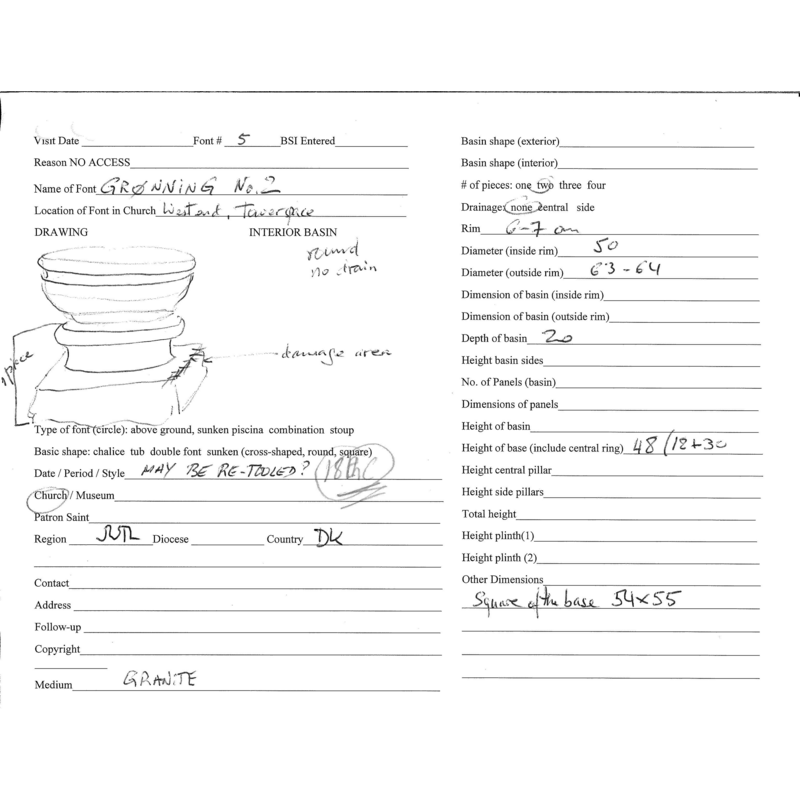 Visit Date Font # 5 BSI Entered
Reason NO ACCESS
Name of Font GRØNNING No. 2
Location of Font in Church West end, Towerspace
DRAWING INTERIOR BASIN
round
no drain
damage area
1 piece
Type of font (circle): above ground, sunken piscina combination stoup
Basic shape: chalice tub double font sunken (cross-shaped, round, square)
Date / Period / Style MAY BE RE-TOOLED? 18thC
Church / Museum
Patron Saint
Region JUTL Diocese Country DK
Contact
Address
Follow-up
Copyright
Medium GRANITE
Basin shape (exterior)
Basin shape (interior)
# of pieces: one two three four
Drainage: none central side
Rim 6-7 cm
Diameter (inside rim) 50
Diameter (outside rim) 63-64
Dimension of basin (inside rim)
Dimension of basin (outside rim)
Depth of basin 20
Height basin sides
No. of Panels (basin)
Dimensions of panels
Height of basin
Height of base (include central ring) 48 (18+30
Height central pillar
Height side pillars
Total height
Height plinth(1)
Height plinth (2)
Other Dimensions
Square of the base 54x55